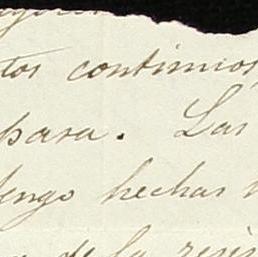 tos continuos
para. Las
tengo hechas
de la